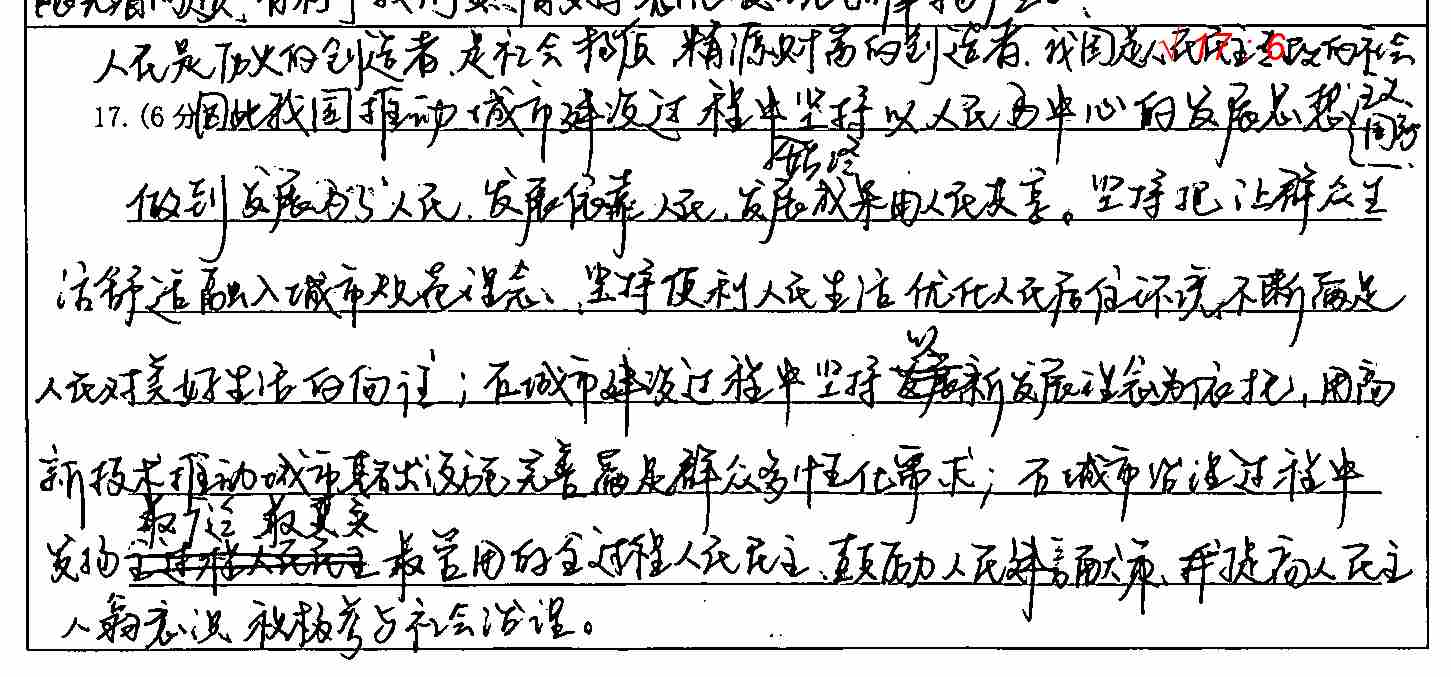 人民是历史的创造者,是社会物质、精神财富的创造者,我国是人民民主专政的社会
主义国家
17. (6分)因此我国推动城市建设过程中坚持以人民为中心的发展思想
始终
做到发展为了人民,发展依靠人民,发展成果由人民共享。坚持把让群众生
活舒适融入城市规范理念、坚持便利人民生活优化人民居住环境,不断满足
人民对美好生活的向往;在城市建设过程中坚持以新发展理念为依托,用高
新技术推动城市基础设施完善满足群众多样化需求;在城市治理过程中
最广泛 最真实
发扬最管用的全过程人民民主,鼓励人民建言献策,并提高人民主
人翁意识 积极参与社会治理。
17: 6